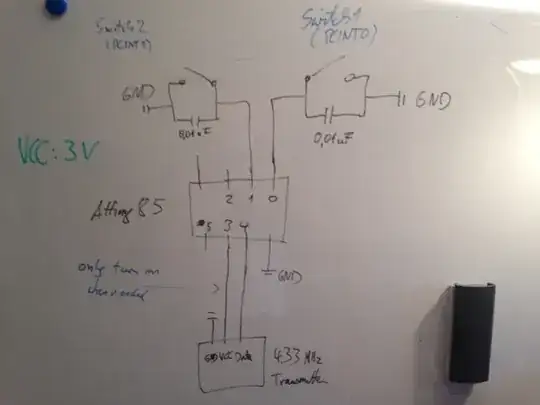 Switch 2
(PCINT0)
Switch 1
(PCINT0)
GND
0,01uF
0,01uF
GND
VCC: 3V
Attiny 85
2 1 0
5 3 4
GND
only turn on
when needed
GND VCC Data
433 MHz
Transmitter